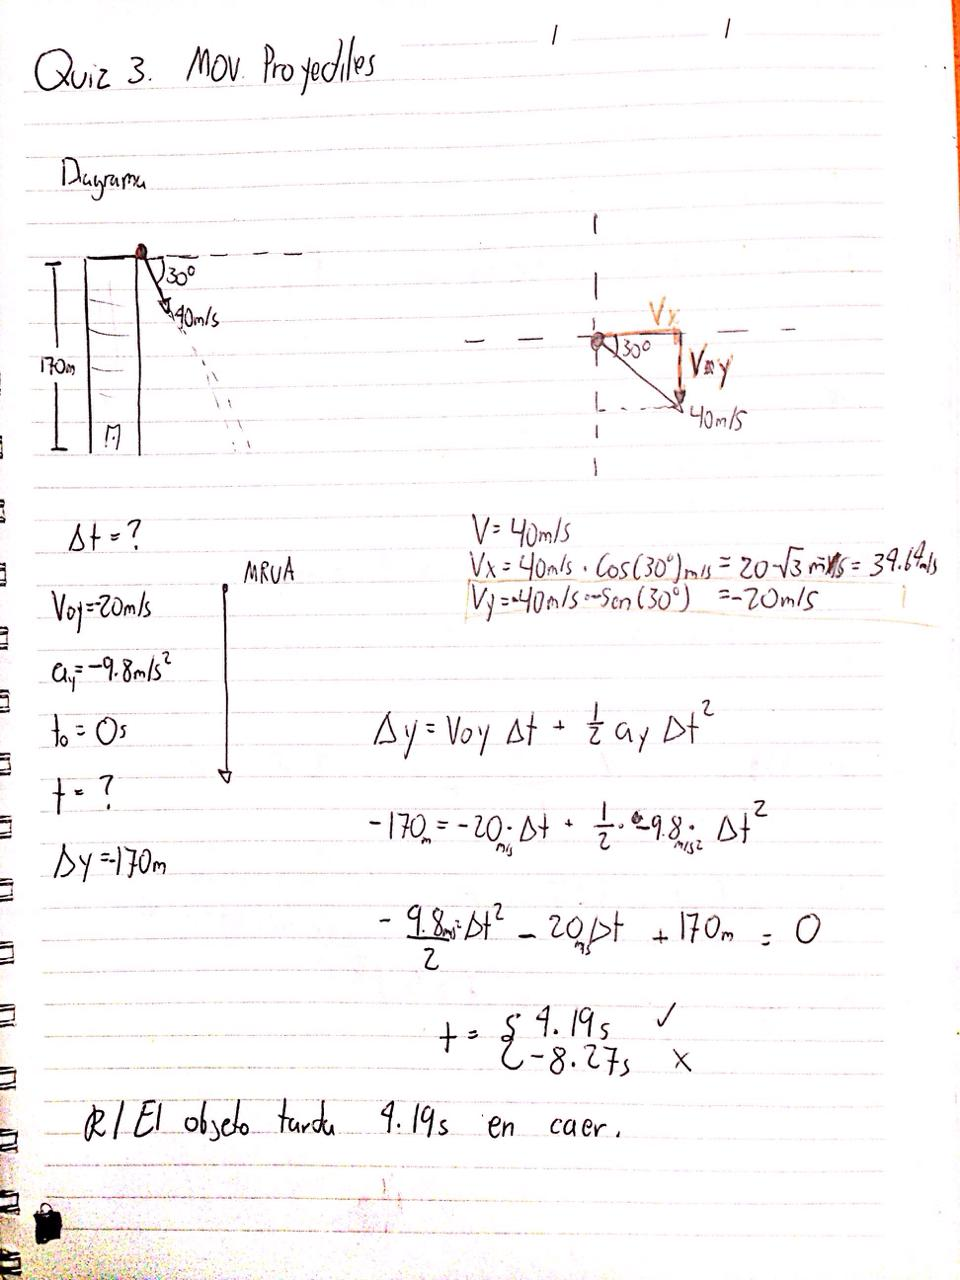 Quiz 3. Mov. Proyectiles
Diagrama
30°
40m/s
170m
Vx
30°
Vy
40m/s
Δt = ?
MRUA
Voy=20m/s
ay=-9.8m/s²
t₀ = 0s
t = ?
Δy=-170m
V= 40m/s
Vx = 40m/s · Cos(30°)m/s = 20√3 m/s = 34.64m/s
Vy=-40m/s·-Sen(30°) =-20m/s
Δy = Voy Δt + 1/2 ay Δt²
-170m = -20m/s · Δt + 1/2 · -9.8m/s² · Δt²
- 9.8m/s²/2 Δt² - 20m/s Δt + 170m = 0
t = { 4.19s ✓
{ -8.27s x
R/ El objeto tarda 4.19s en caer.